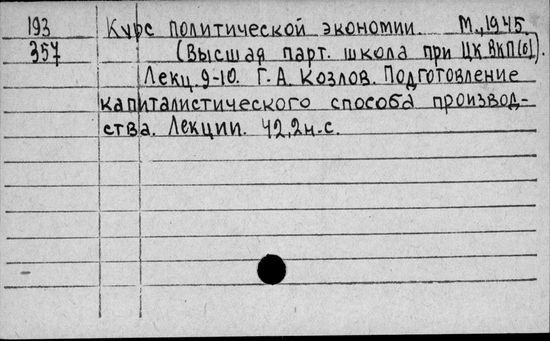 193 Курс политической экономии. М., 1945.
357 (Высшая парт. школа при ЦК ВКП(б)).
Лекц. 9-10. Г. А. Козлов. Подготовление
капиталистического способа производ-
ства. Лекции. 42,2н.с.